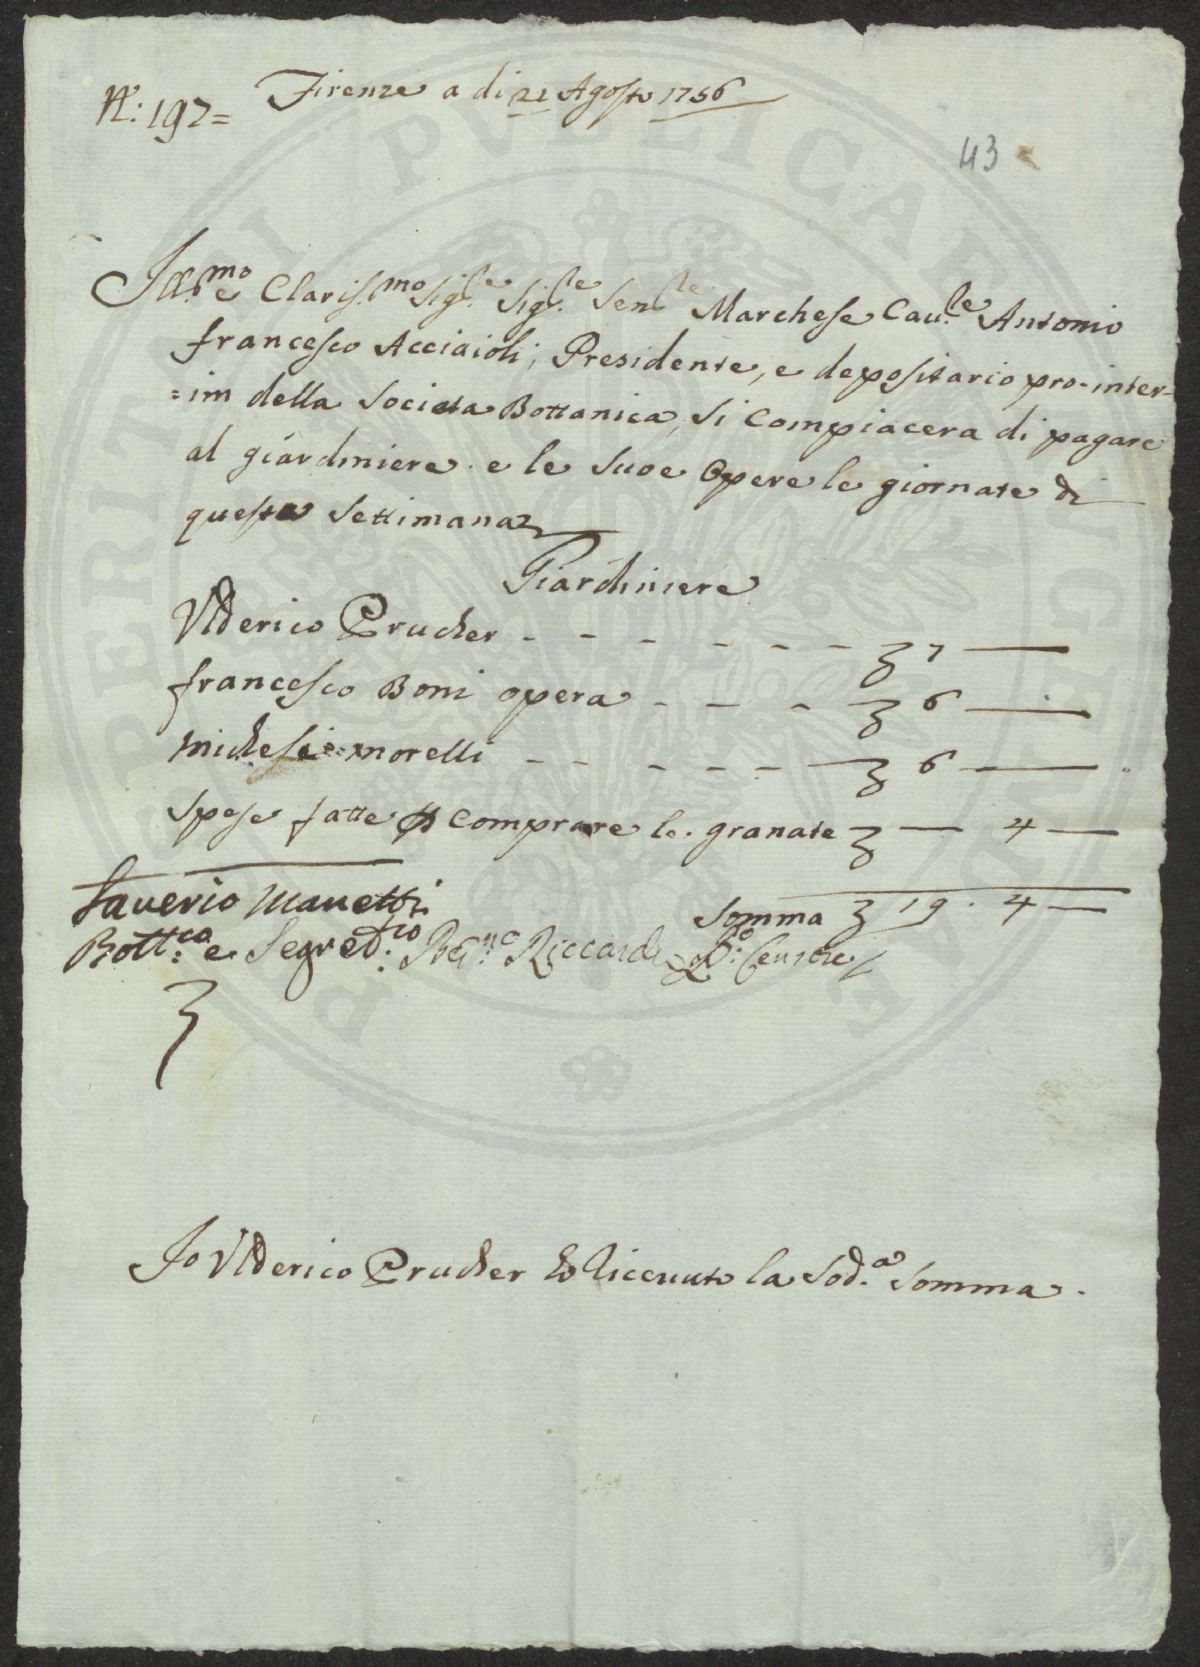 N.º: 197=
Firenze a di 21 Agosto 1756
43
Ill.mo e Clariss.mo Sig.re Sig.re Sen.re Marchese Cau.re Antonio
francesco Acciaioli, Presidente, e depositario pro-inter-
=im della Societa Bottanica, Si Compiacera di pagare
al giardiniere e le Suoe Opere le giornate di
questa Settimana
Giardiniere
Vlderico Prucher - - - - - - - 7 —
francesco Boni opera - - - 6 —
Michele Morelli - - - - - - 6 —
Spese fatte p Comprare le granate — 4 —
Somma 19 . 4 —
Saverio Manetti
Bott.co e Segret.rio Ber.no Riccardi Censore
Io Vlderico Prucher ho Riceuuto la Sod.a Somma.
PERIALI PVBLICAE